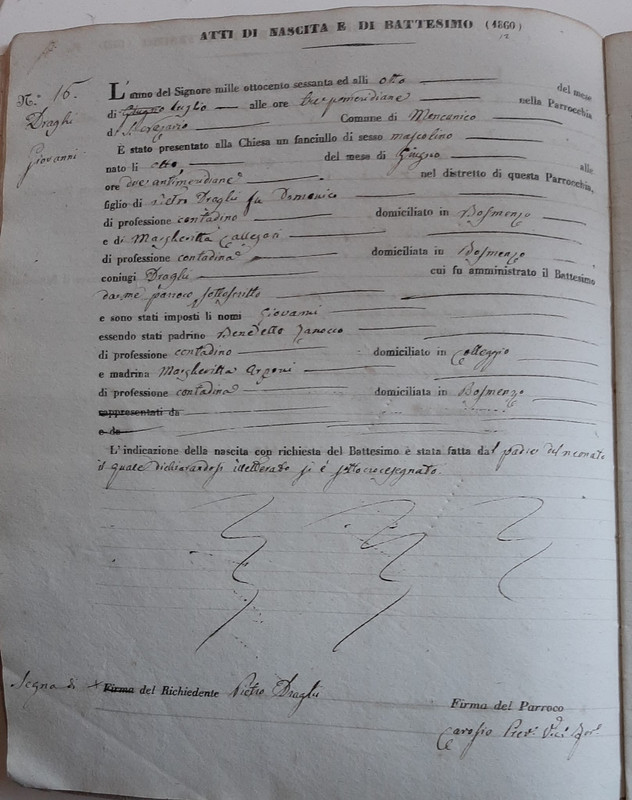 ATTI DI NASCITA E DI BATTESIMO (1860)
N.° 16.
Draghi
Giovanni
L'anno del Signore mille ottocento sessanta ed alli otto del mese
di Giugno luglio alle ore tre pomeridiane nella Parrocchia
di Comune di Moncanico
È stato presentato alla Chiesa un fanciullo di sesso mascolino
nato li otto del mese di Giugno alle
ore due antimeridiane nel distretto di questa Parrocchia,
figlio di Pietro Draghi fu Domenico
di professione contadino domiciliato in Bosmenzo
e di Margheritta Callegari
di professione contadina domiciliata in Bosmenzo
coniugi Draghi cui fu amministrato il Battesimo
da me paroco sottoscritto
e sono stati imposti li nomi Giovanni
essendo stati padrino Benedetto Zanocco
di professione contadino domiciliato in Colleggio
e madrina Margheritta
di professione contadina domiciliata in Bosmenzo
rappresentati da
e da
L'indicazione della nascita con richiesta del Battesimo è stata fatta dal padre del neonato
il quale dichiarandosi iletterato si è sottocrocesegnato.
Segno di x Firma del Richiedente Pietro Draghi
Firma del Parroco
Carosio